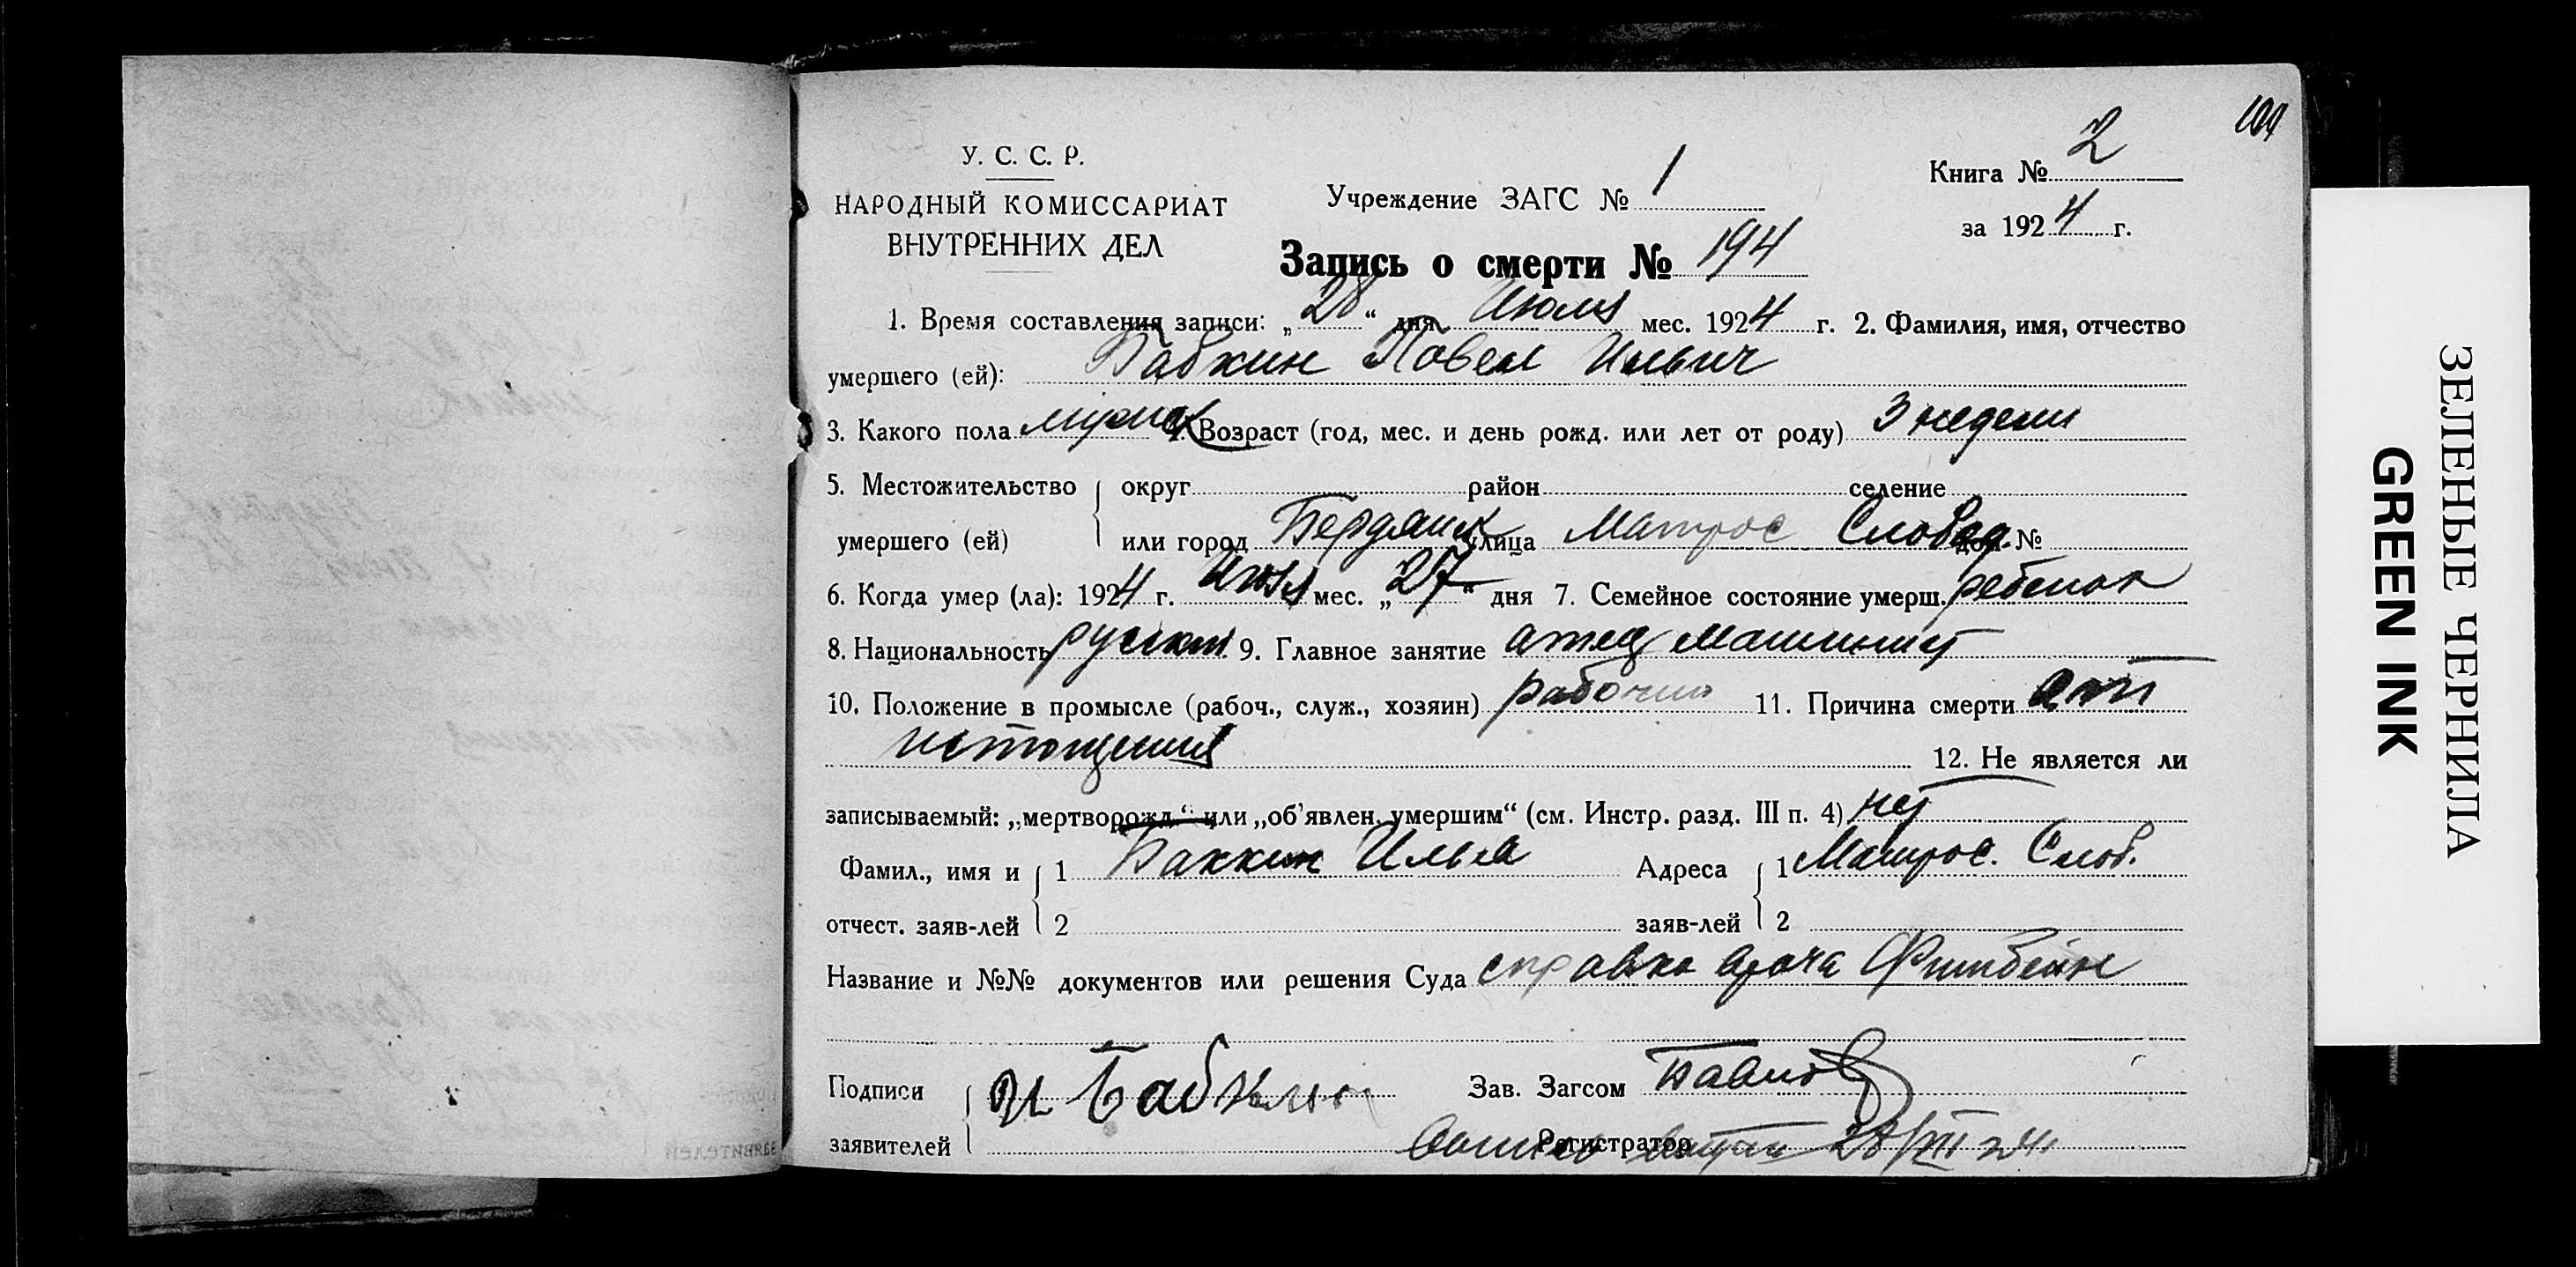 104
У. С. С. Р.
НАРОДНЫЙ КОМИССАРИАТ
ВНУТРЕННИХ ДЕЛ
Учреждение ЗАГС № 1
Книга № 2
за 1924 г.
Запись о смерти № 194
1. Время составления записи: „28“ дня Июля мес. 1924 г. 2. Фамилия, имя, отчество
умершего (ей): Бабкин Повел Ильич
3. Какого пола мужск 4. Возраст (год, мес. и день рожд. или лет от роду) 3 недели
5. Местожительство округ район селение
умершего (ей) или город Бердянск улица Матрос Слобод дом. №
6. Когда умер (ла): 1924 г. Июля мес. „27“ дня 7. Семейное состояние умерш. ребенок
8. Национальность русский 9. Главное занятие атец машинист
10. Положение в промысле (рабоч., служ., хозяин) рабочий 11. Причина смерти от
истощения 12. Не является ли
записываемый: „мертворожд.“ или „об’явлен. умершим“ (см. Инстр. разд. III п. 4) нет
Фамил., имя и 1 Баккин Илья Адреса 1 Матрос. Слоб.
отчест. заяв-лей 2 заяв-лей 2
Название и №№ документов или решения Суда справка врача
Подписи И Бабкин Зав. Загсом
заявителей Регистратор 28/VII 24
ЗЕЛЕНЫЕ ЧЕРНИЛА
GREEN INK